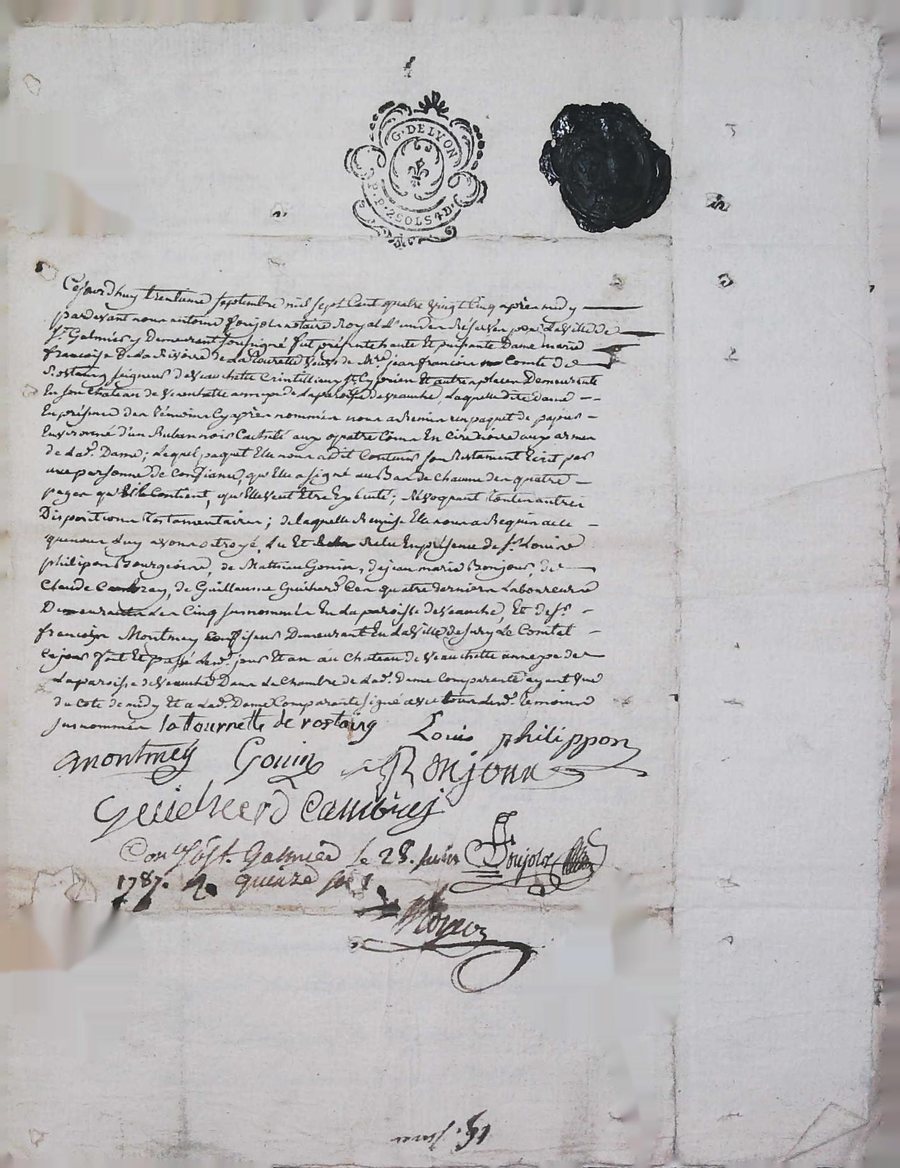 G. DE LYON
P. P. 2 SOLS 4 D.
Cejourdhuy trentieme septembre mil sept cent quatre vingt cinq après midy
pardevant nous antoine foujols notaire Royal Reservé pour la ville de
St. Galmier y Demeurant soussigné fut présente haute Et puissante Dame marie
francoise De la Riviere de la Tourette Veuve de Mre. jean francois Comte De
Rostaing seigneur de veauchette Et autres places Demeurante
En son Chateau de veauchette annexe de la paroisse de veauche, Laquelle dite Dame
En présence des témoins cy après nommés nous a Remis un paquet de papier
Environné d'un Ruban noir Cacheté aux quatre Coins En cire noire aux armes
de lad. Dame; Lequel paquet Elle nous a dit Contenir son testament Ecrit par
une personne de Confiance, qu'Elle a signé au Bas de Chacune des quatre
pages qu'il Contient, qu'Elle veut Etre Exécuté; Révoquant toutes autres
Dispositions testamentaires; de laquelle Remise Elle nous a Requis acte
que nous luy avons octroyé, Lu Et Relu En présence de sr. Louis
philipon Bourgeois, de Mathieu Gonin, de jean marie Bonjour, de
Claude Cambray, de Guillaume Guichard Ces quatre derniers Laboureurs
Demeurants les Cinq susnommés En la paroisse de veauche, Et de sr.
françois Montmey Demeurant En la ville de Sury Le Comtal
Ce jour fait Et passé led. jour Et an au Chateau de veauchette annexe de
la paroisse de veauche Dans la Chambre de lad. dame Comparante ayant vue
du Coté de midy Et a lad. Dame Comparante signé avec tous lesd. temoins
susnommés la tournette de rostaing Louis philippon
montmey Gonin Bonjour
Guicheerd Cambrey
Con. a St. Galmier le 28. juin foujols
1787. R. quinze sols